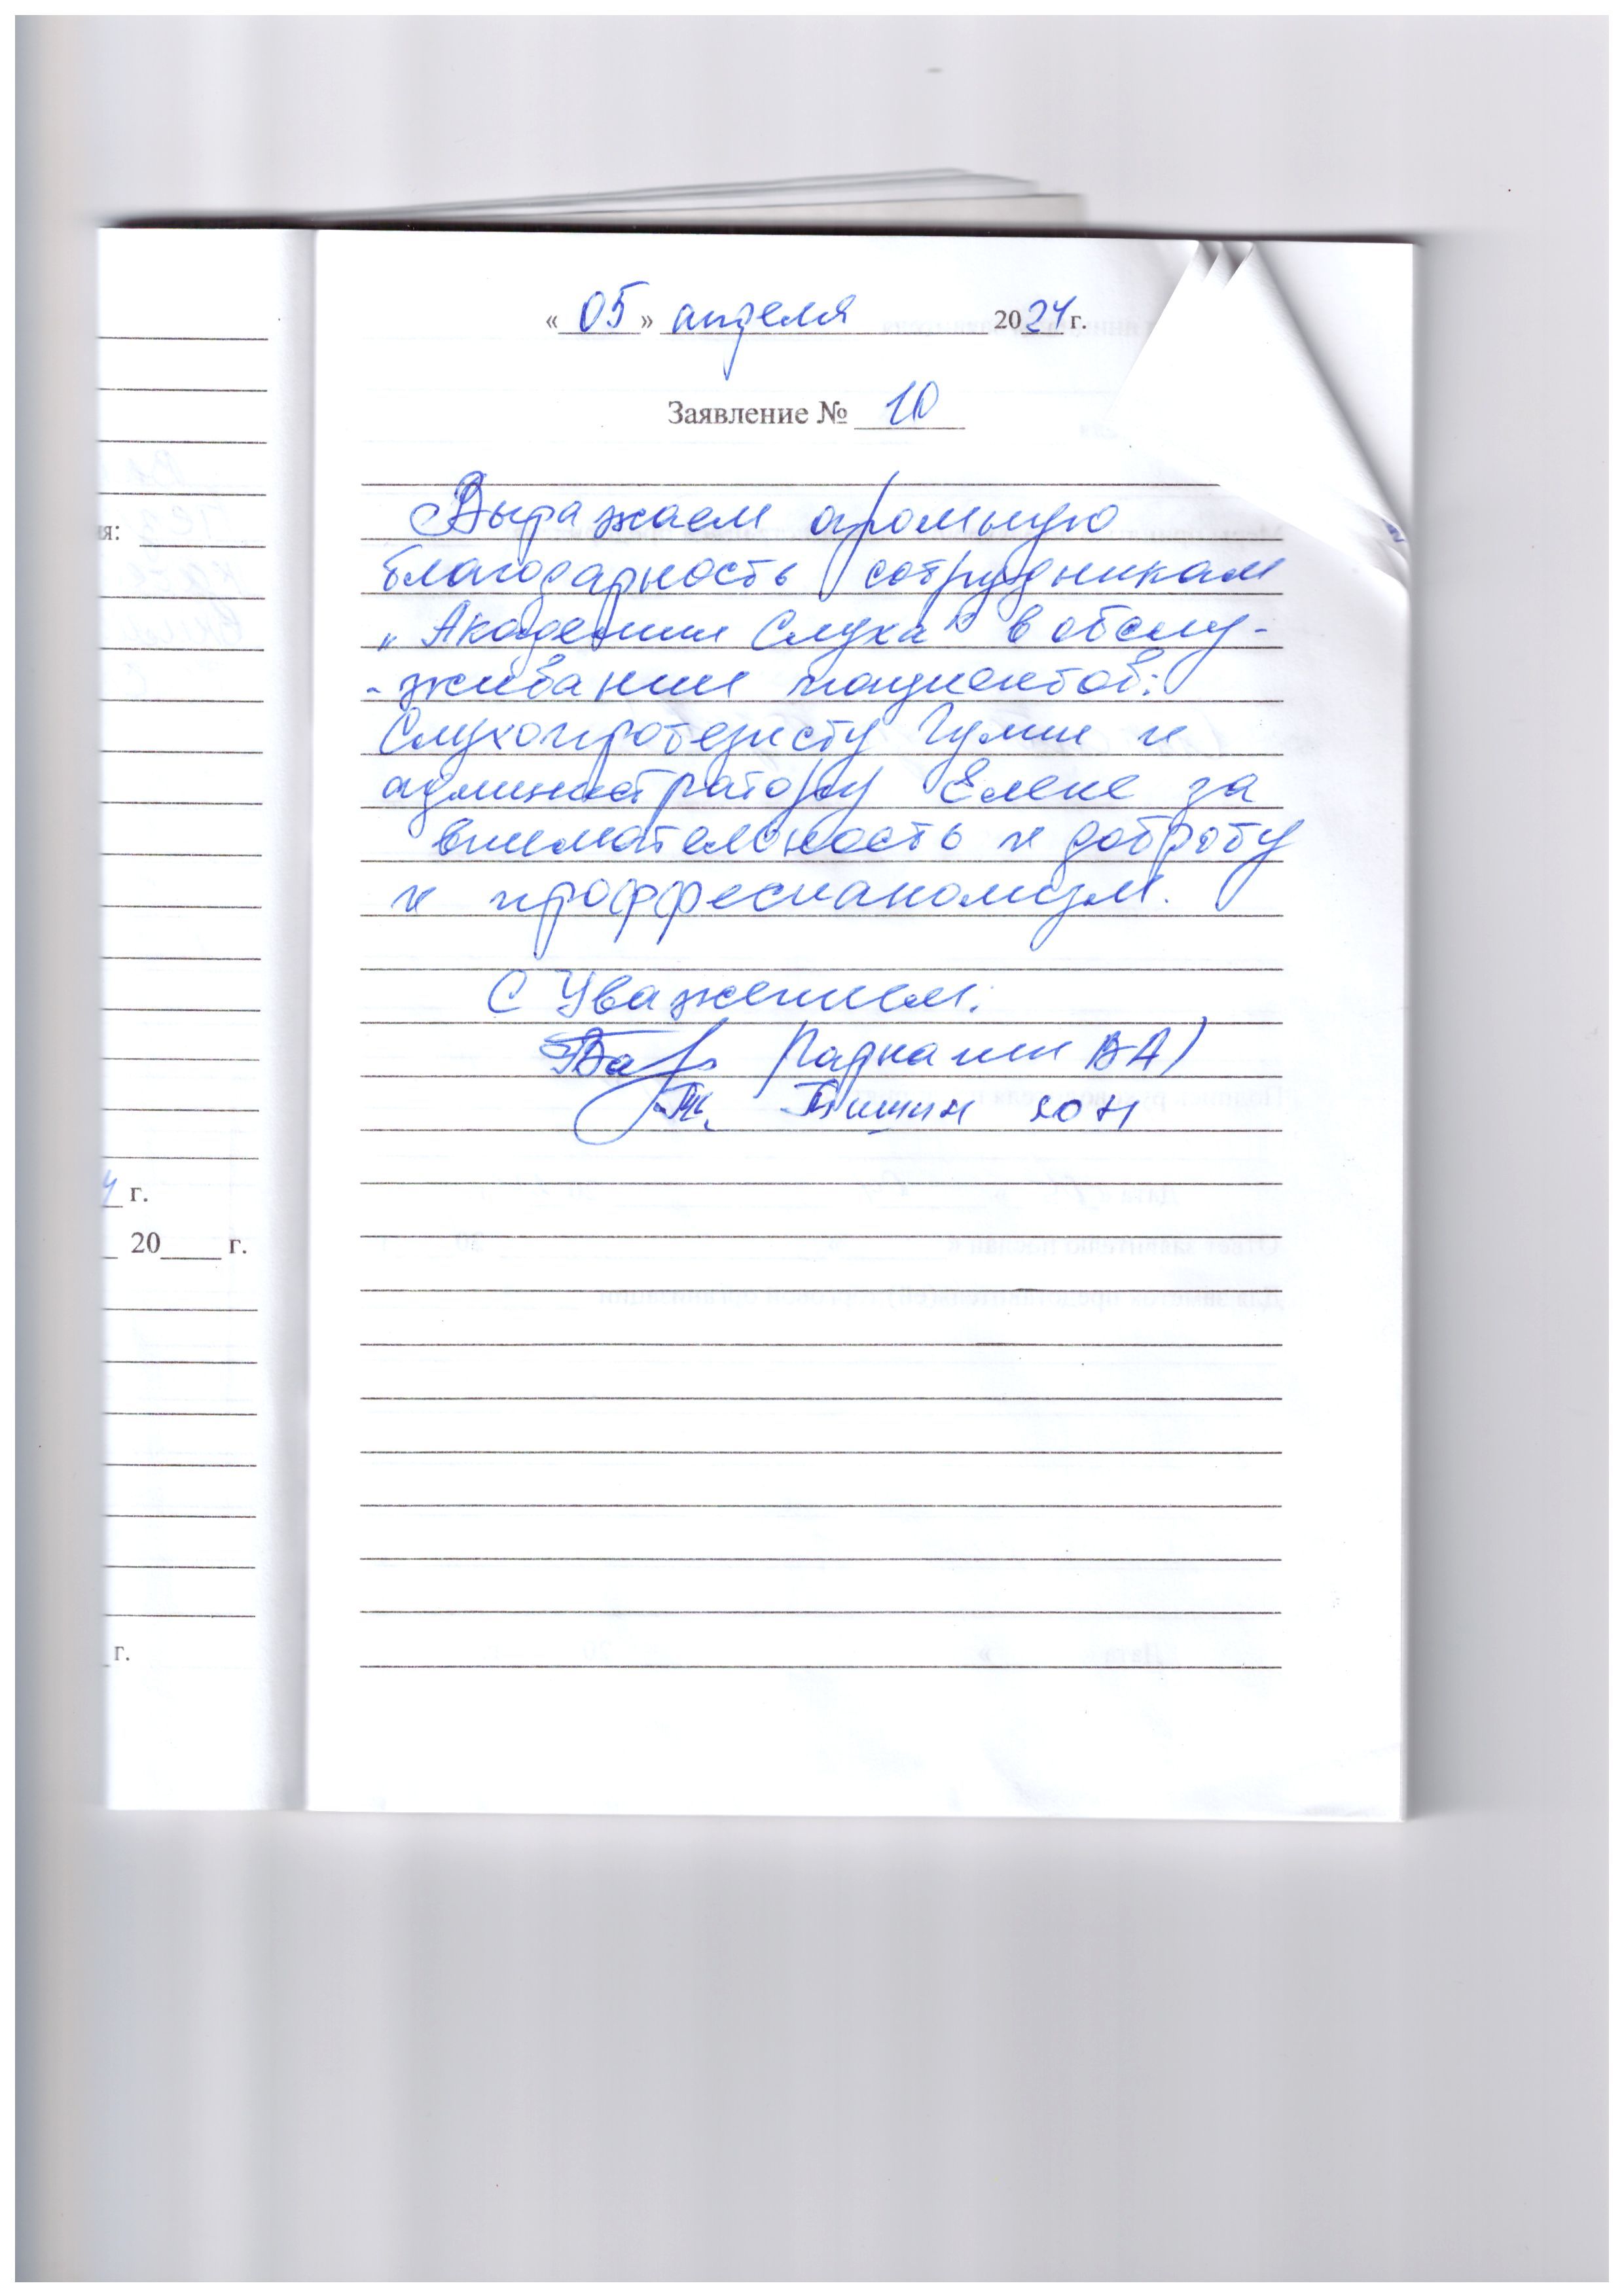 «05» апреля 2024 г.
Заявление № 10
Выражаем огромную
благодарность сотрудникам
„Академии Слуха" в обслу-
-живании пациентов:
Слухопротезисту Гулии и
администратору Елене за
внимательность и доброту
и проффесианализм.
С Уважением:
ВА)
Тишин ЮН
я:
г.
20 г.
г.